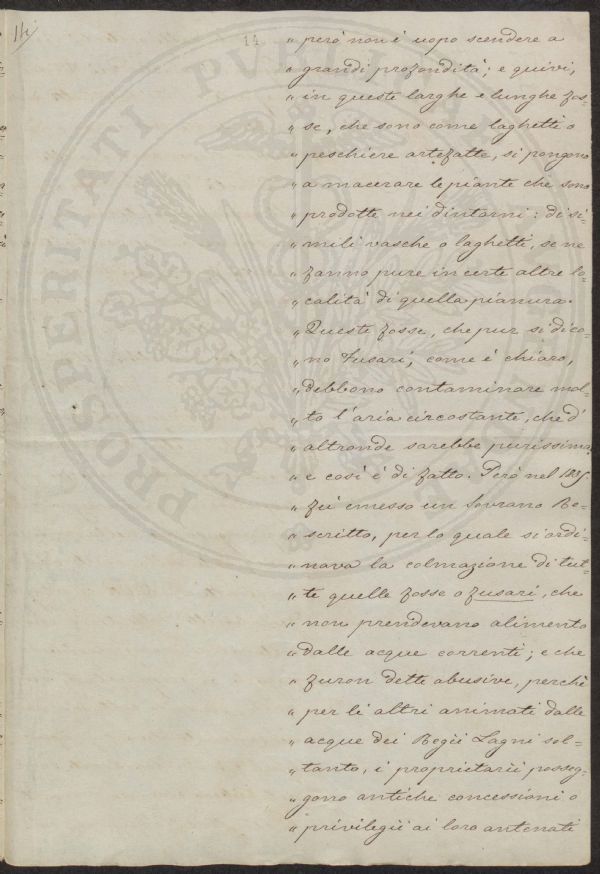 14
14
" però non è uopo scendere a
" grandi profondità; e quivi,
" in queste larghe e lunghe fos-
" se, che sono come laghetti o
" peschiere artefatte, si pongono
" a macerare le piante che sono
" prodotte nei dintorni: di si-
" mili vasche o laghetti, se ne
" fanno pure in certe altre lo-
" calità di quella pianura.
" Queste fosse, che pur si dico-
" no Fusari, come è chiaro,
" debbono contaminare mol-
" to l'aria circostante, che d'
" altronde sarebbe purissima,
" e così è di fatto. Però nel 1835
" fu emesso un Sovrano Re-
" scritto, per lo quale si ordi-
" nava la colmazione di tut-
" te quelle fosse o fusari, che
" non prendevano alimento
" dalle acque correnti; e che
" furon dette abusive, perchè
" per li altri animati dalle
" acque dei Regii Lagni sol-
" tanto, i proprietarii posseg-
" gono antiche concessioni o
" privilegii ai loro antenati
PROSPERITATI PVBLICAE